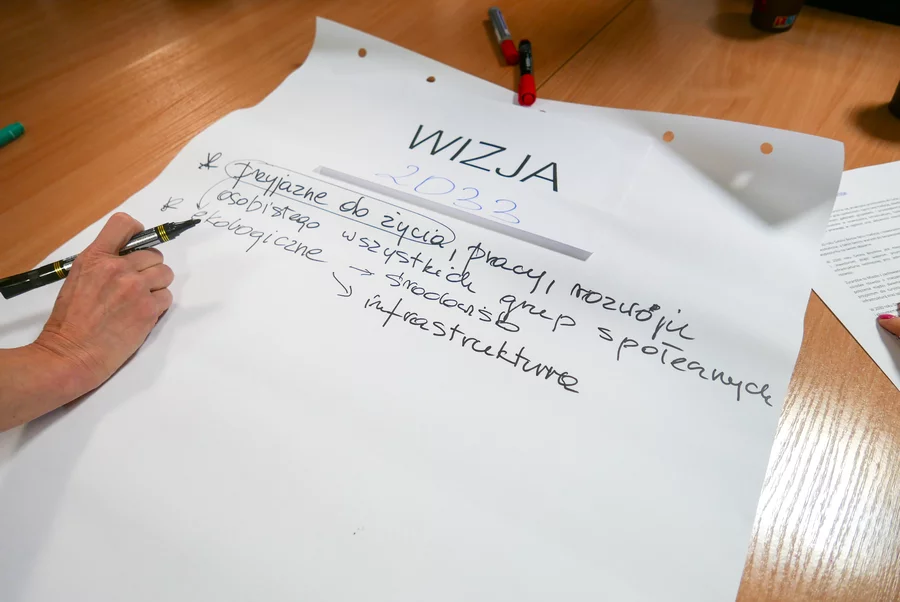 WIZJA
2033
* przyjazne do życia, pracy, rozwoju
osobistego wszystkich grup społecznych
* ekologiczne → środowisko
↘ infrastruktura